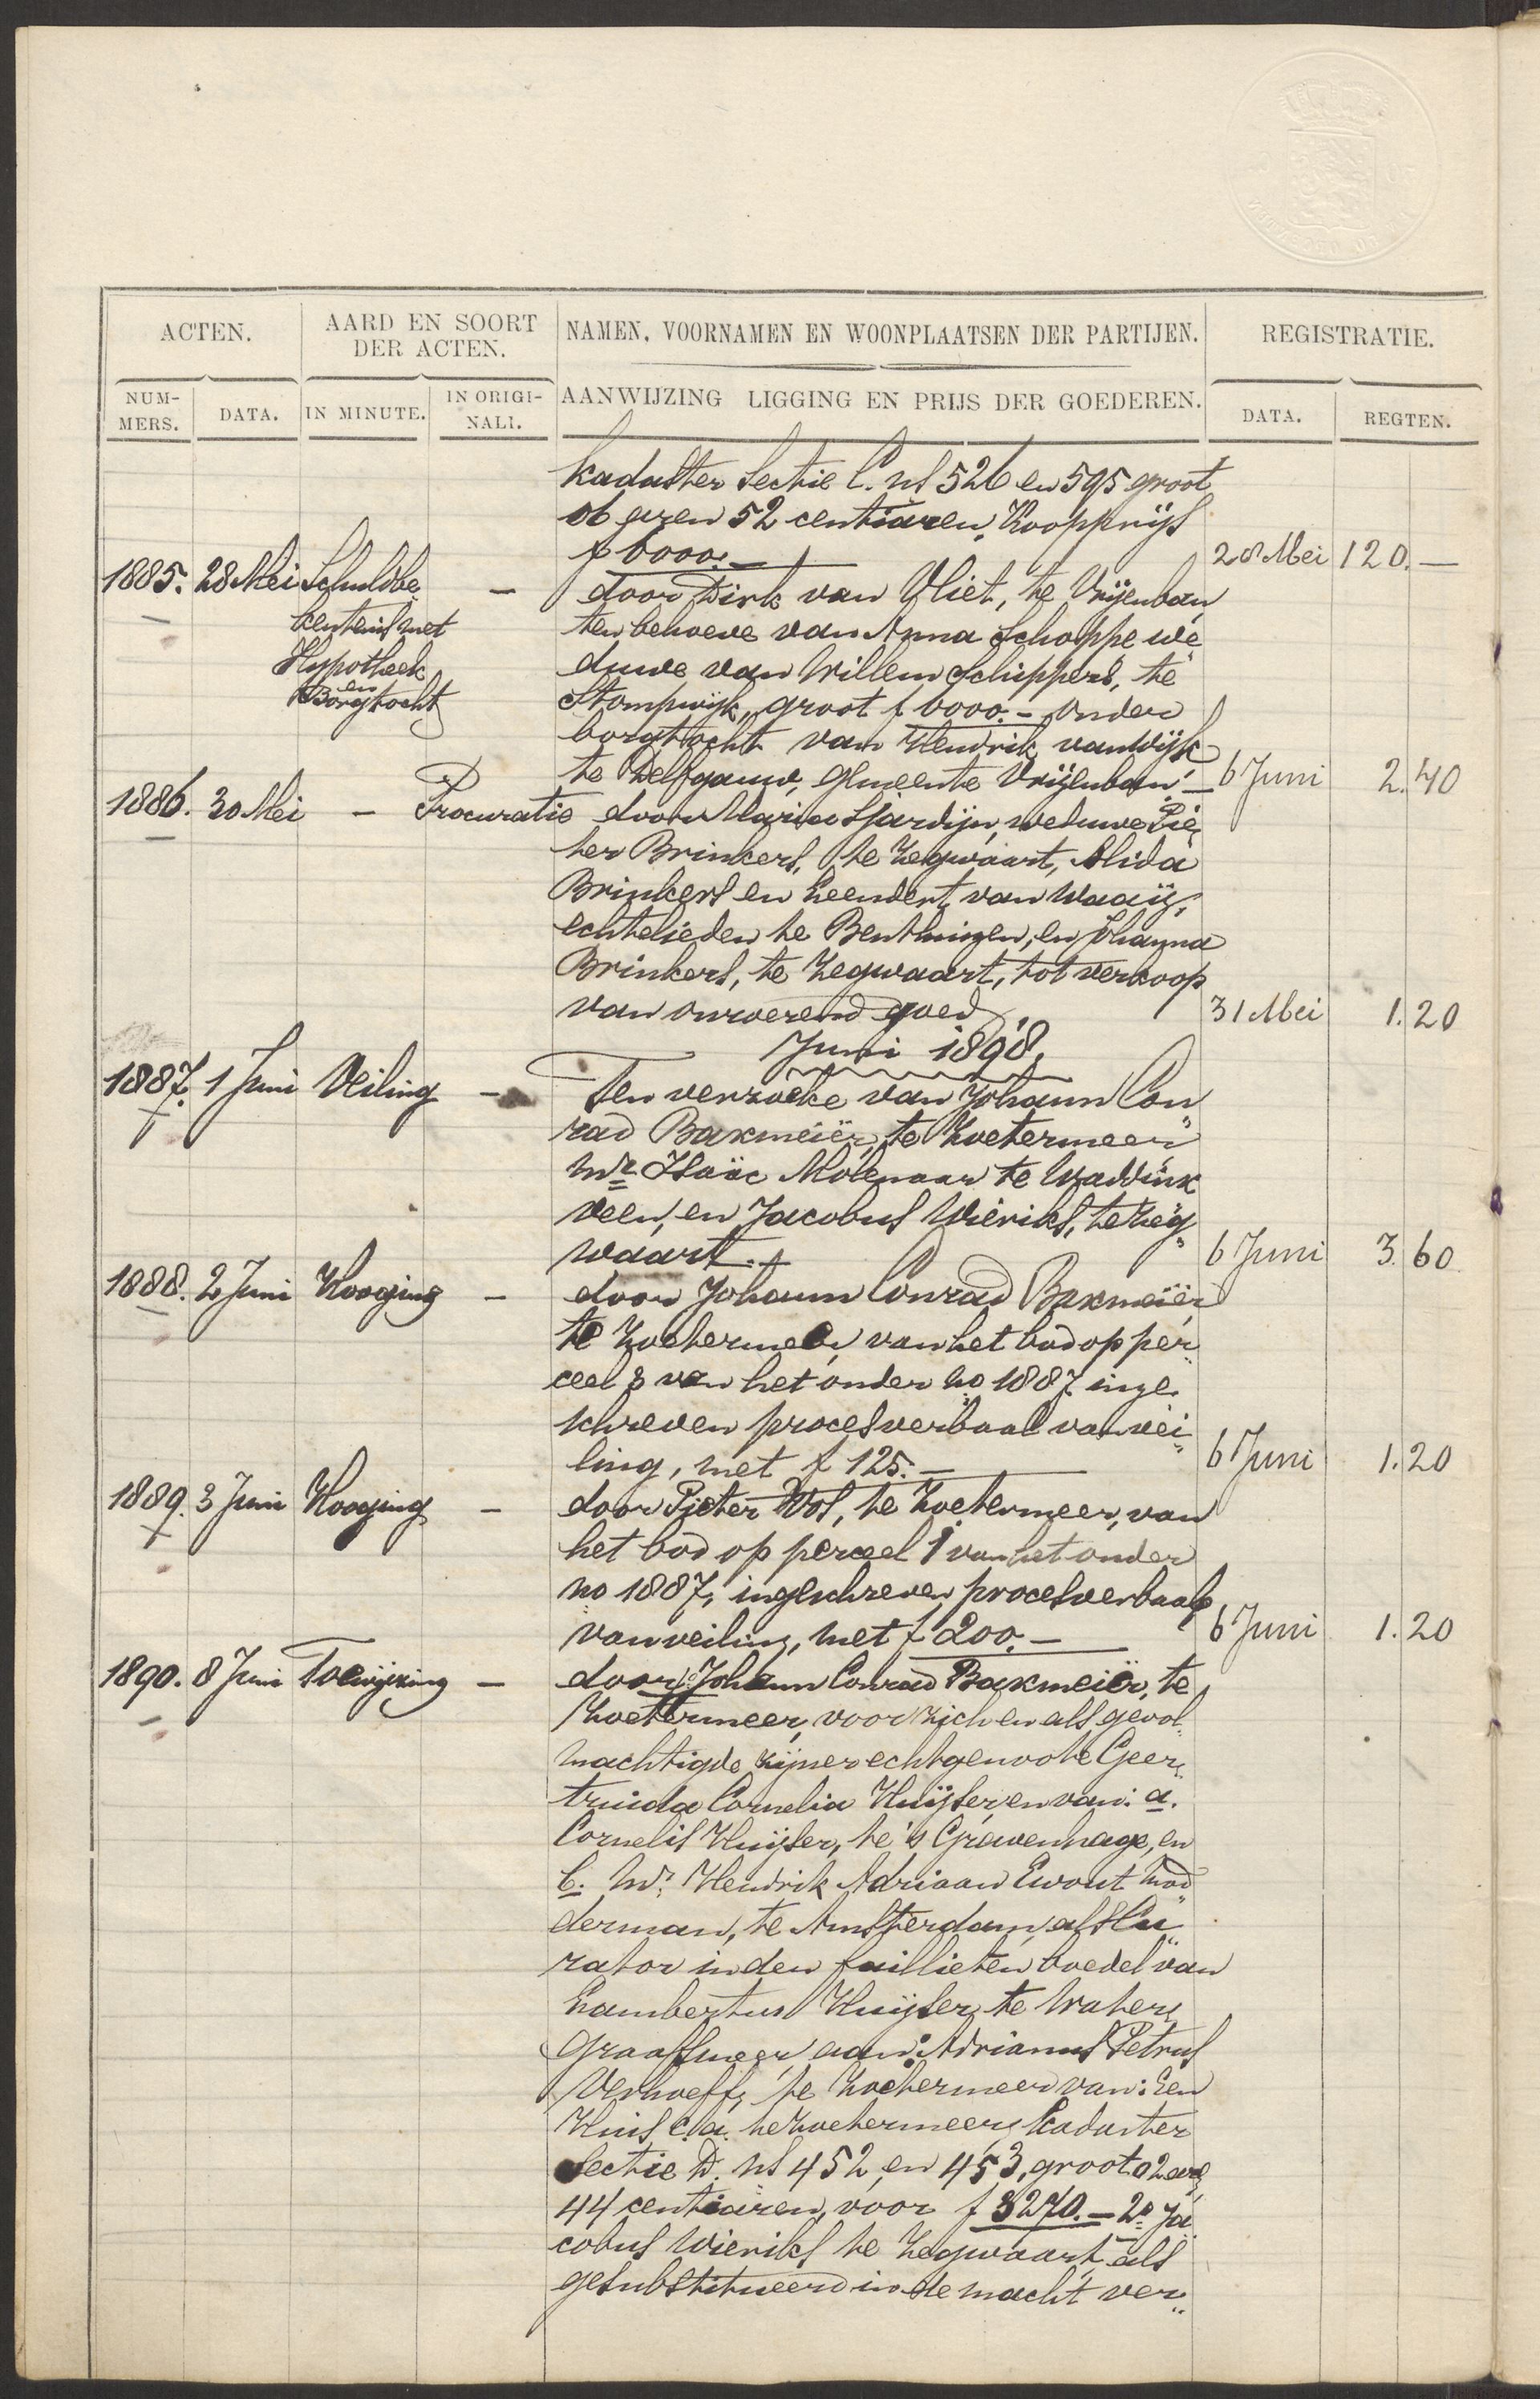 ACTEN.
AARD EN SOORT
DER ACTEN.
NAMEN, VOORNAMEN EN WOONPLAATSEN DER PARTIJEN.
REGISTRATIE.
NUM-
MERS.
DATA.
IN MINUTE.
IN ORIGI-
NALI.
AANWIJZING LIGGING EN PRIJS DER GOEDEREN.
DATA.
REGTEN.
kadaster Sectie C. ns 526 en 595 groot
06 aren 52 centiaren, Koopprijs
f 6000.- 28 Mei 120.-
1885. 28 Mei Schuldbe„ - door Dirk van Vliet, te Vrijenban,
kentenis met ten behoeve van Anna Schoppe we„
Hypotheek duwe van Willem Schippers, te
en
Borgtocht Stompwijk, groot f 6000.- onder
borgtocht van Hendrik van Wijk
te Delfgauw, gemeente Vrijenban.- 6 Juni 2.40
1886. 30 Mei - Procuratie door Maria Sjardijn, weduwe Pie„
ter Brinkers, te Zegwaart, Alida
Brinkers en Leendert van Waaij,
echtelieden te Benthuizen, en Johanna
Brinkers, te Zegwaart, tot verkoop
van onroerend goed. 31 Mei 1.20
Juni 1898.
1887. 1 Juni Veiling - Ten verzoeke van Johann Con„
rad Baxmeiër, te Zoetermeer,
Mr Isaäc Molenaar te Waddinx„
veen, en Jacobus Wieriks, te Zeg„
waart. 6 Juni 3.60
1888. 2 Juni Hooging - door Johann Conrad Baxmeiër,
te Zoetermeer, van het bod op per„
ceel 3 van het onder no 1887 inge„
schreven procesverbaal van vei„
ling, met f 125.- 6 Juni 1.20
1889. 3 Juni Hooging - door Pieter Vos, te Zoetermeer, van
het bod op perceel 1 van het onder
no 1887, ingeschreven procesverbaal
van veiling, met f 200.- 6 Juni 1.20
1890. 8 Juni Toewijzing - door Johann Conrad Baxmeiër, te
Zoetermeer, voor zich en als gevol„
machtigde zijner echtgenoote Geer„
truida Cornelia Huijser, en van: a.
Cornelis Huijser, te 's Gravenhage, en
b. Mr Hendrik Adriaan Ewout Mod„
derman, te Amsterdam, als Cu„
rator in den faillieten boedel van
Lambertus Huijser, te Water„
graafsmeer, aan: Adrianus Petrus
Verhoeff, te Zoetermeer van: Een
Huis c.a. te Zoetermeer, Kadaster
Sectie D. ns 452 en 453, groot 02 aren
44 centiaren, voor f 3270.- 2o Ja„
cobus Wieriks te Zegwaart, als
gesubstitueerd in de macht ver„